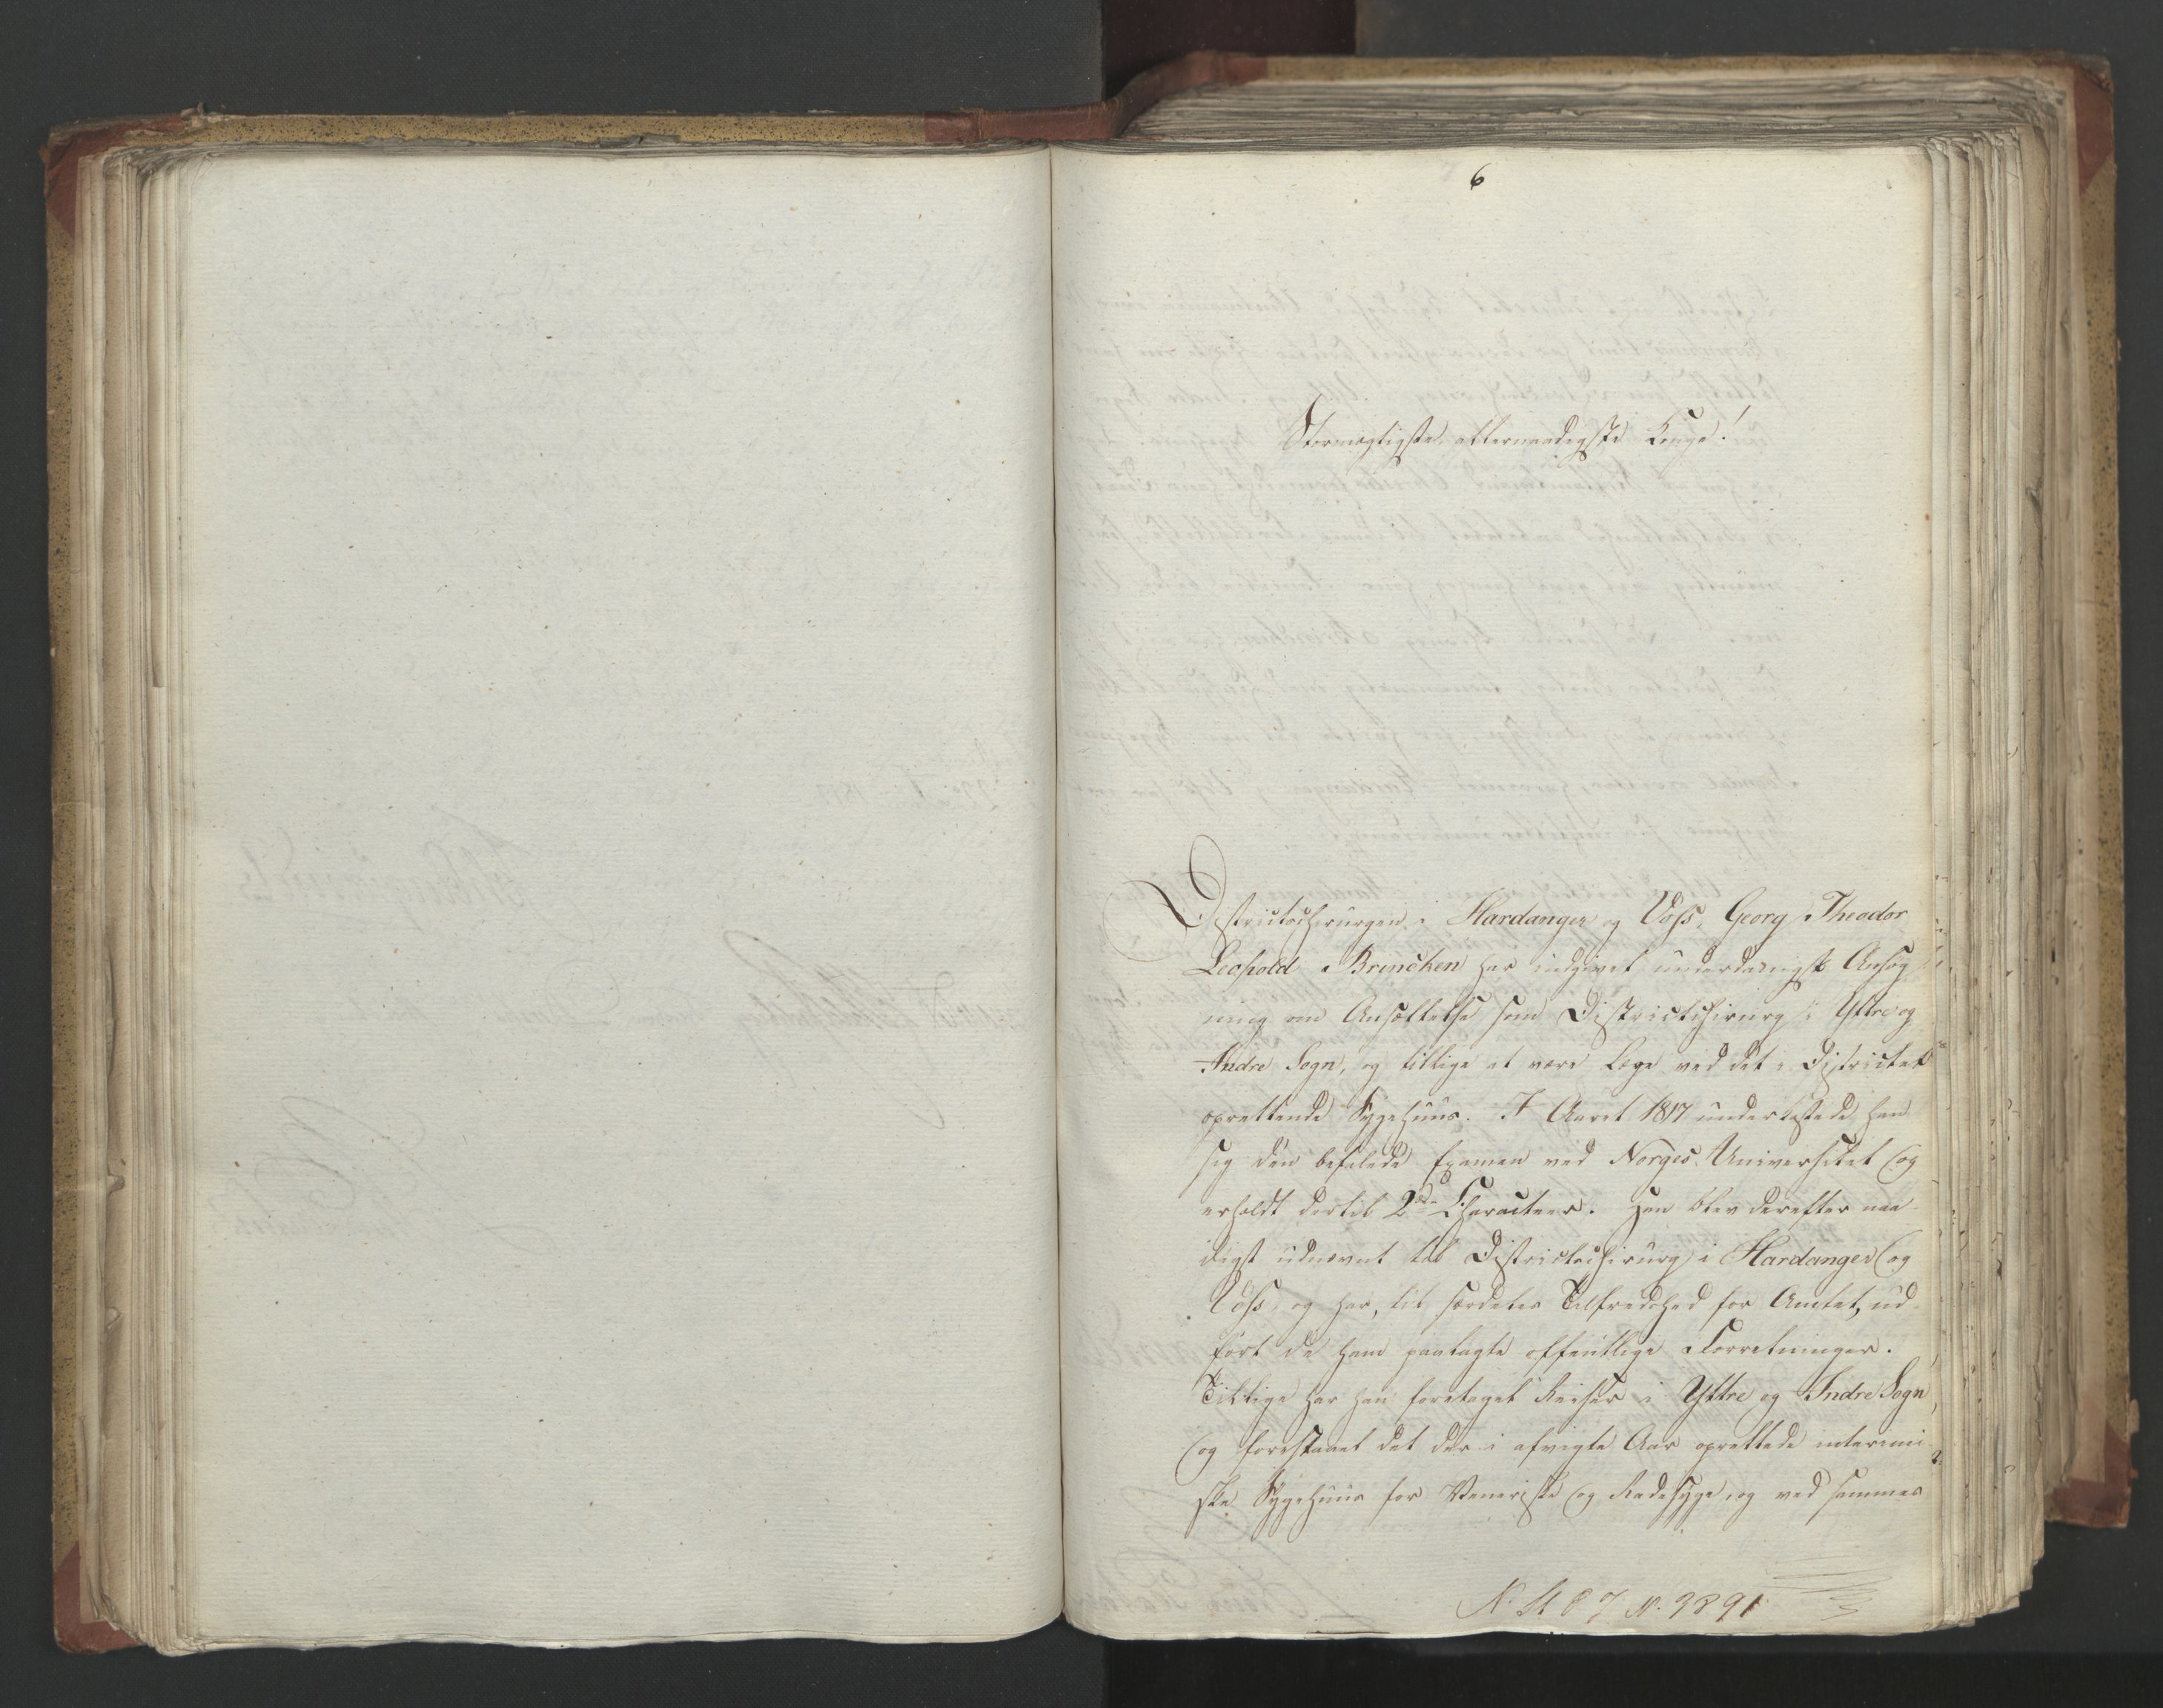 6
Stormægtigste, allernaadigste Konge!
Districtschirurgen i Hardanger og Voss, Georg Theodor
Leopold Brincken har indgivet underdanigst Ansøg-
ning om Ansættelse som Districtschirurg i Yttre og
Indre Sogn, og tillige at være Læge ved det i Districtet
oprettende Sygehuus. I Aaret 1817 underkastede han
sig den befalede Examen ved Norges Universitet og
erholdt dertil 2den Characteer. Han blev derefter naa-
digst udnævnt til Districtschirurg i Hardanger og
Voss og har, til særdeles Tilfredshed for Amtet, ud-
ført de ham paalagte offentlige Forretninger.
Tillige har han foretaget Reiser i Yttre og Indre Sogn,
og forestaaet det der i afvigte Aar oprettede interimi-
ske Sygehuus for Veneriske og Radesyge, og ved sammes
N. 3891